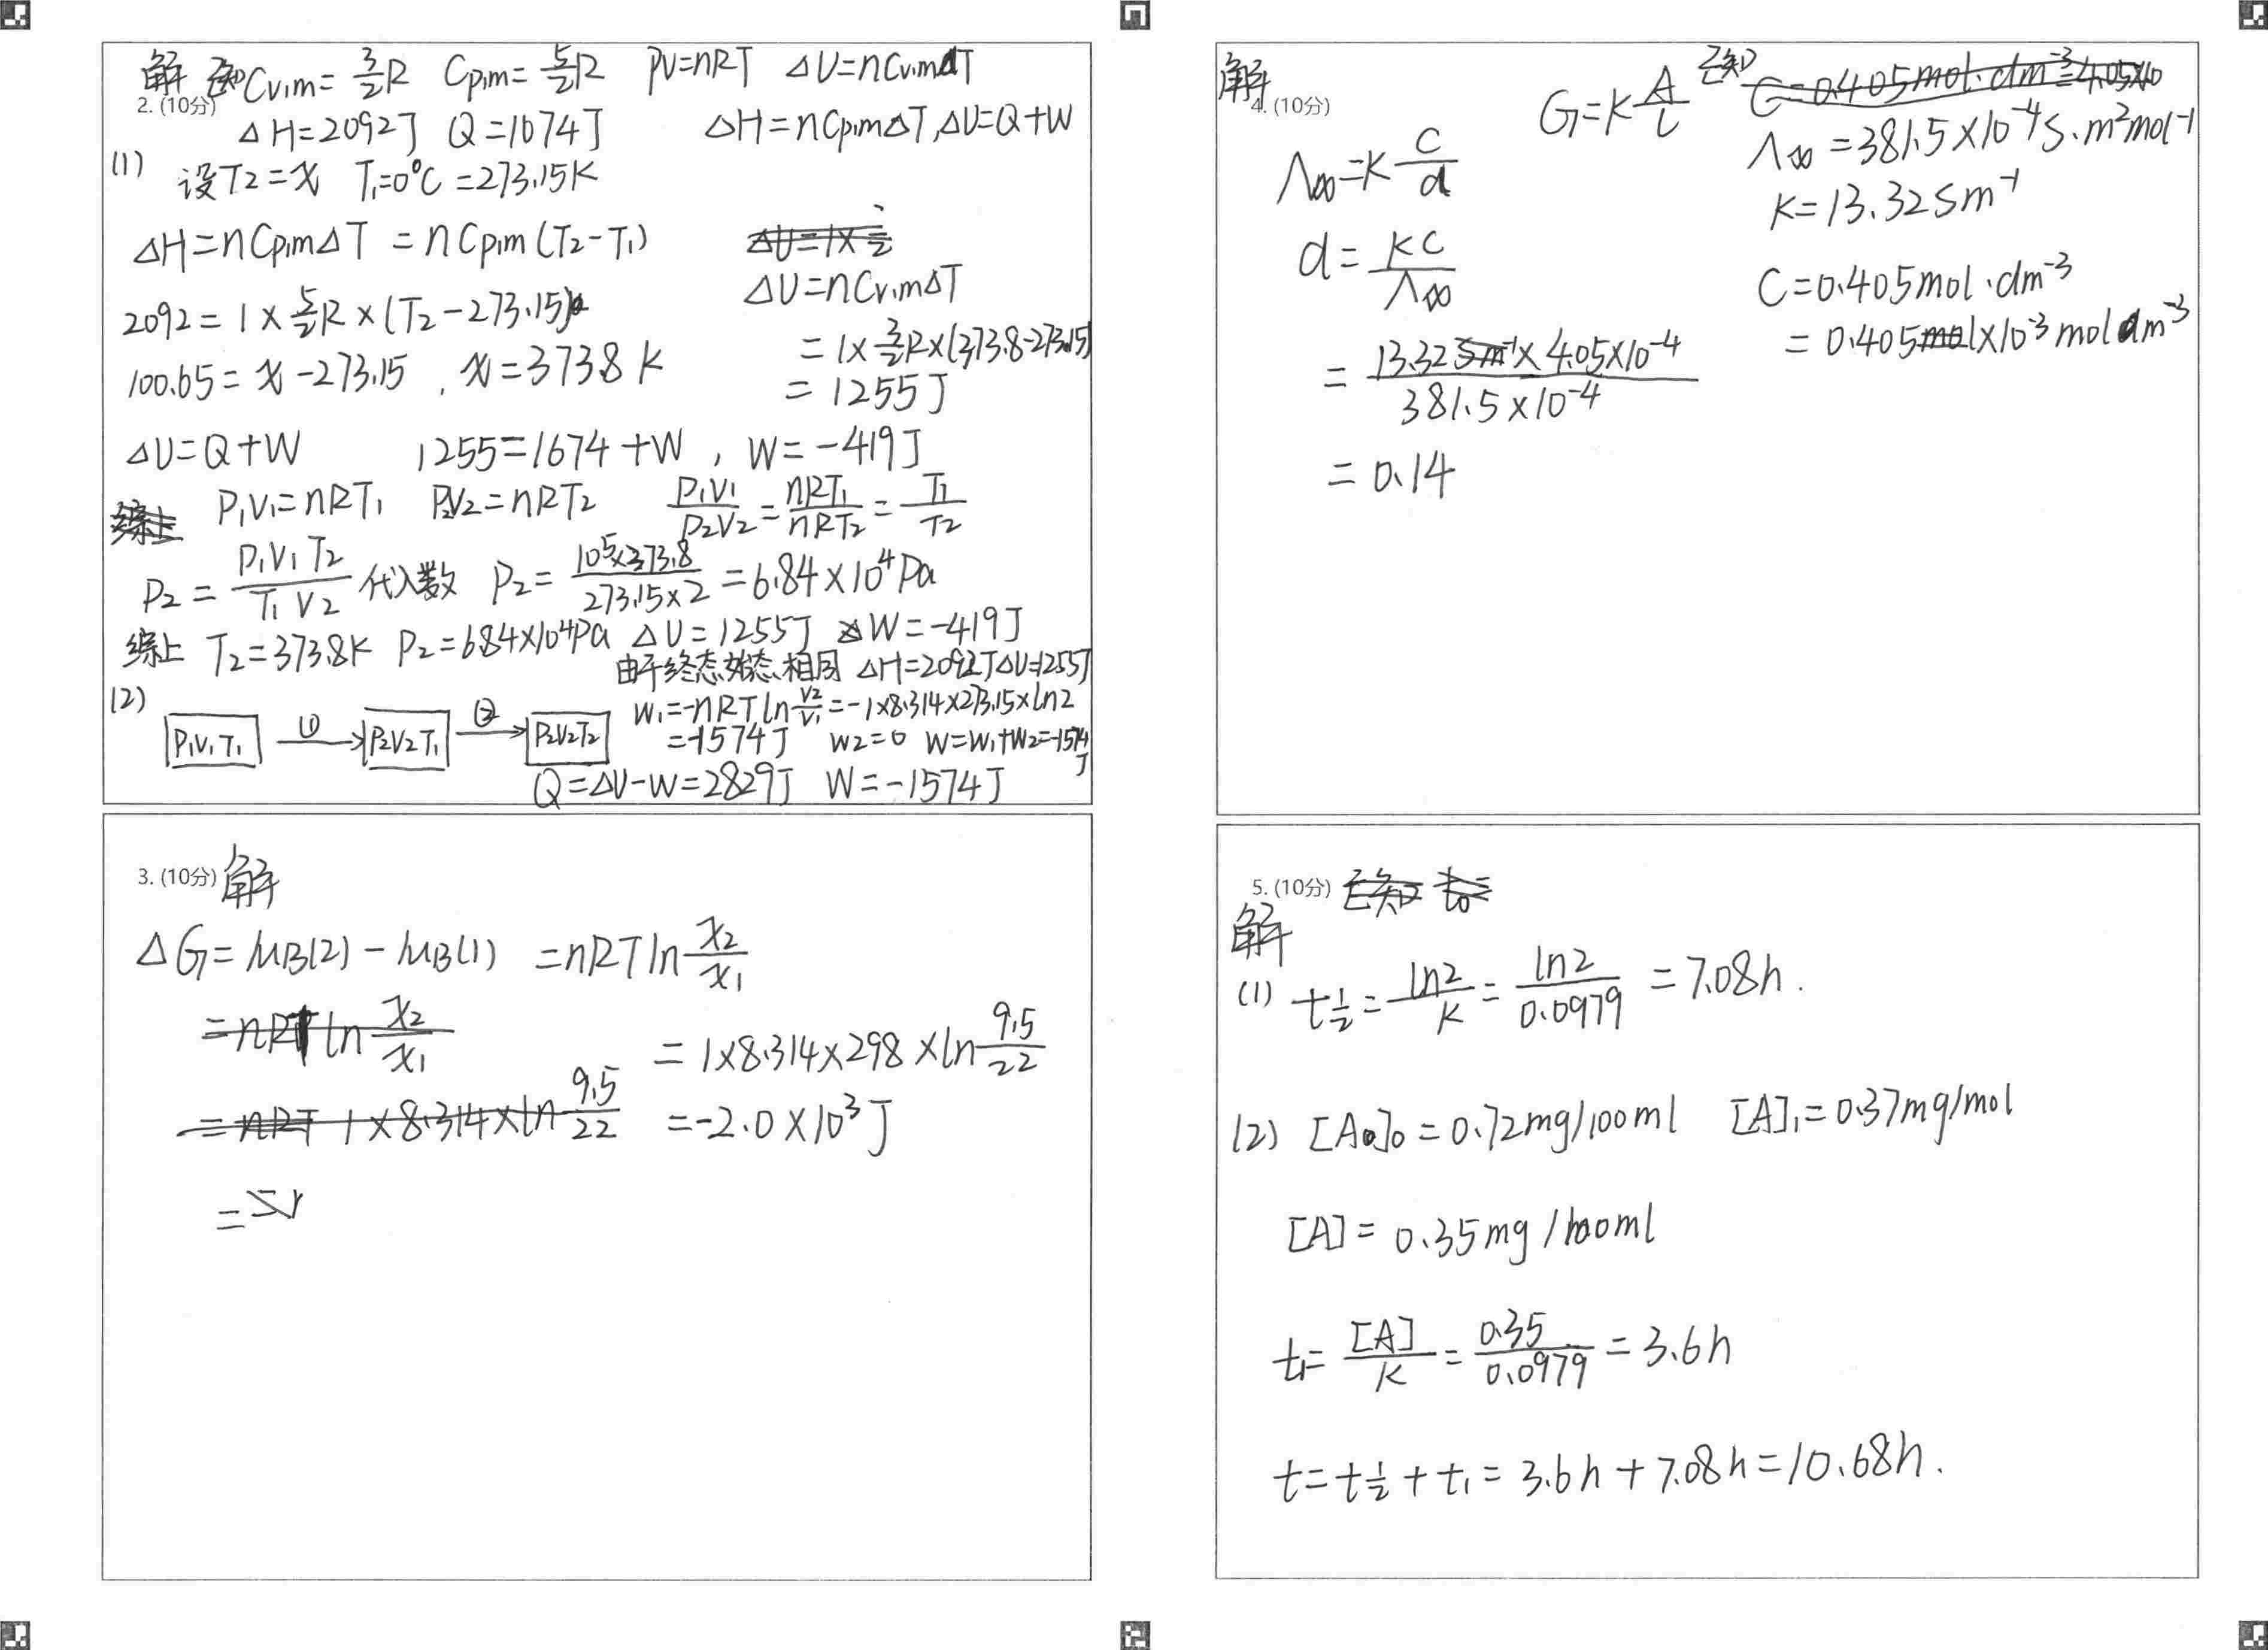 解 已知 Cv,m = 3/2 R Cp,m = 5/2 R PV=nRT ΔU=nCv,mΔT
2. (10分)
ΔH=2092J Q=1674J ΔH=nCp,mΔT, ΔU=Q+W
(1) 设T2=x T1=0°C=273.15K
ΔH=nCp,mΔT =nCp,m(T2-T1)
2092=1×5/2R×(T2-273.15)
100.65=x-273.15, x=373.8K
ΔU=1×3/2
ΔU=nCv,mΔT
=1×3/2R×(373.8-273.15)
=1255J
ΔU=Q+W 1255=1674+W, W=-419J
综上 P1V1=nRT1 P2V2=nRT2 P1V1/P2V2=nRT1/nRT2=T1/T2
P2=P1V1T2/T1V2 代入数 P2=10^5×373.8/273.15×2=6.84×10^4Pa
综上 T2=373.8K P2=6.84×10^4Pa ΔU=1255J W=-419J
由于终态始态相同 ΔH=2092JΔU=1255J
(2)
P1V1T1 ① P2V2T1 ② P2V2T2
W1=-nRTln V2/V1=-1×8.314×273.15×ln2
=-1574J W2=0 W=W1+W2=-1574J
Q=ΔU-W=2829J W=-1574J
3. (10分) 解
ΔG=μB(2)-μB(1) =nRTln x2/x1
=nRTln x2/x1
=nRT 1×8.314×ln 9.5/22
=1×8.314×298×ln 9.5/22
=-2.0×10^3J
=
解
4. (10分)
G=K A/l 已知 C=0.405mol·dm^-3=4.05×10
Λ∞=K C/d
Λ∞=381.5×10^-4S·m^2mol^-1
K=13.32Sm^-1
d=KC/Λ∞
C=0.405mol·dm^-3
=0.405×10^-3mol dm^-3
=13.32Sm^-1×4.05×10^-4/381.5×10^-4
=0.14
5. (10分) 已知 t0=
解
(1) t1/2=ln2/K=ln2/0.0979=7.08h.
(2) [A0]0=0.72mg/100ml [A]1=0.37mg/mol
[A]=0.35mg/100ml
t1=[A]/K=0.35/0.0979=3.6h
t=t1/2+t1=3.6h+7.08h=10.68h.